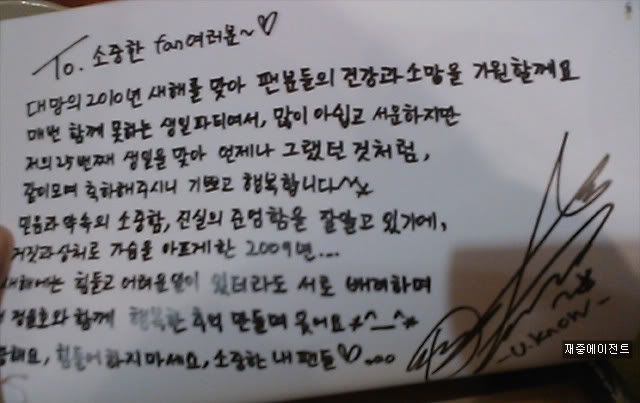 To. 소중한 fan여러분~♡
대망의 2010년 새해를 맞아 팬분들의 건강과 소망을 기원할께요
매번 함께 못하는 생일파티여서, 많이 아쉽고 서운하지만
저의 25번째 생일을 맞아 언제나 그랬던 것처럼,
같이모여 축하해주시니 기쁘고 행복합니다^^*
믿음과 약속의 소중함, 진실의 준엄함을 잘알고 있기에,
거짓과 상처로 가슴을 아프게한 2009년....
새해에는 힘들고 어려운일이 있더라도 서로 배려하며
정윤호와 함께 행복한 추억 만들며 웃어요 *^_^*
힘들어하지마세요, 소중한 내 팬들♡....
-U.Know-
재중에이전트